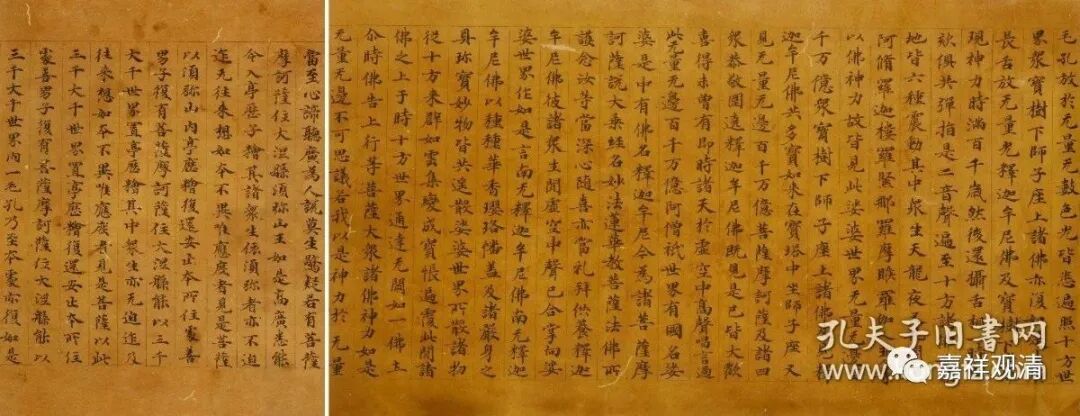 毛孔放於无量无數色光皆悉遍照十方世
界衆寶樹下師子座上諸佛亦復
長舌放无量光釋迦牟尼佛及寶樹
現神力時滿百千歲然後還攝舌
欬俱共彈指是二音聲遍至十方諸
地皆六種震動其中衆生天龍夜
阿脩羅迦樓羅緊那羅摩睺羅伽
以佛神力故皆見此娑婆世界无量邊
千万億衆寶樹下師子座上諸佛
迦牟尼佛共多寶如来在寶塔中坐師子座又
見无量无邊百千万億菩薩摩訶薩及諸四
衆恭敬圍遶釋迦牟尼佛既見是已皆大歡
喜得未曾有即時諸天於虛空中高聲唱言過
此无量无邊百千万億阿僧祇世界有國名娑
婆是中有佛名釋迦牟尼今為諸菩薩摩
訶薩說大乘經名妙法蓮華教菩薩法佛所
護念汝等當深心隨喜亦當礼拜供養釋迦
牟尼佛彼諸衆生聞虛空中聲已合掌向娑
婆世界作如是言南无釋迦牟尼佛南无釋迦
牟尼佛以種種華香瓔珞幡蓋及諸嚴身之
具珎寶妙物皆共遥散娑婆世界所散諸物
從十方来辟如雲集變成寶帳遍覆此間諸
佛之上于時十方世界通達无閡如一佛土
尒時佛告上行等菩薩大衆諸佛神力如是
无量无邊不可思議若我以是神力於无量
當至心諦聽廣為人說莫生驚疑若有菩薩
摩訶薩住大涅槃須弥山王如是高廣悉能
令入葶藶子糩其諸衆生依須弥者亦不迫
迮无往来想如本不異唯應度者見是菩薩
以須弥山内葶藶糩復還安止本所住處善
男子復有菩薩摩訶薩住大涅槃能以三千
大千世界置葶藶糩其中衆生亦无迫迮及
往来想如本不異唯應度者見是菩薩以此
三千大千世界置葶藶糩復還安止本所住
處善男子復有菩薩摩訶薩住大涅槃能以
三千大千世界内一毛孔乃至本處亦復如是
孔夫子旧书网
嘉祥观清